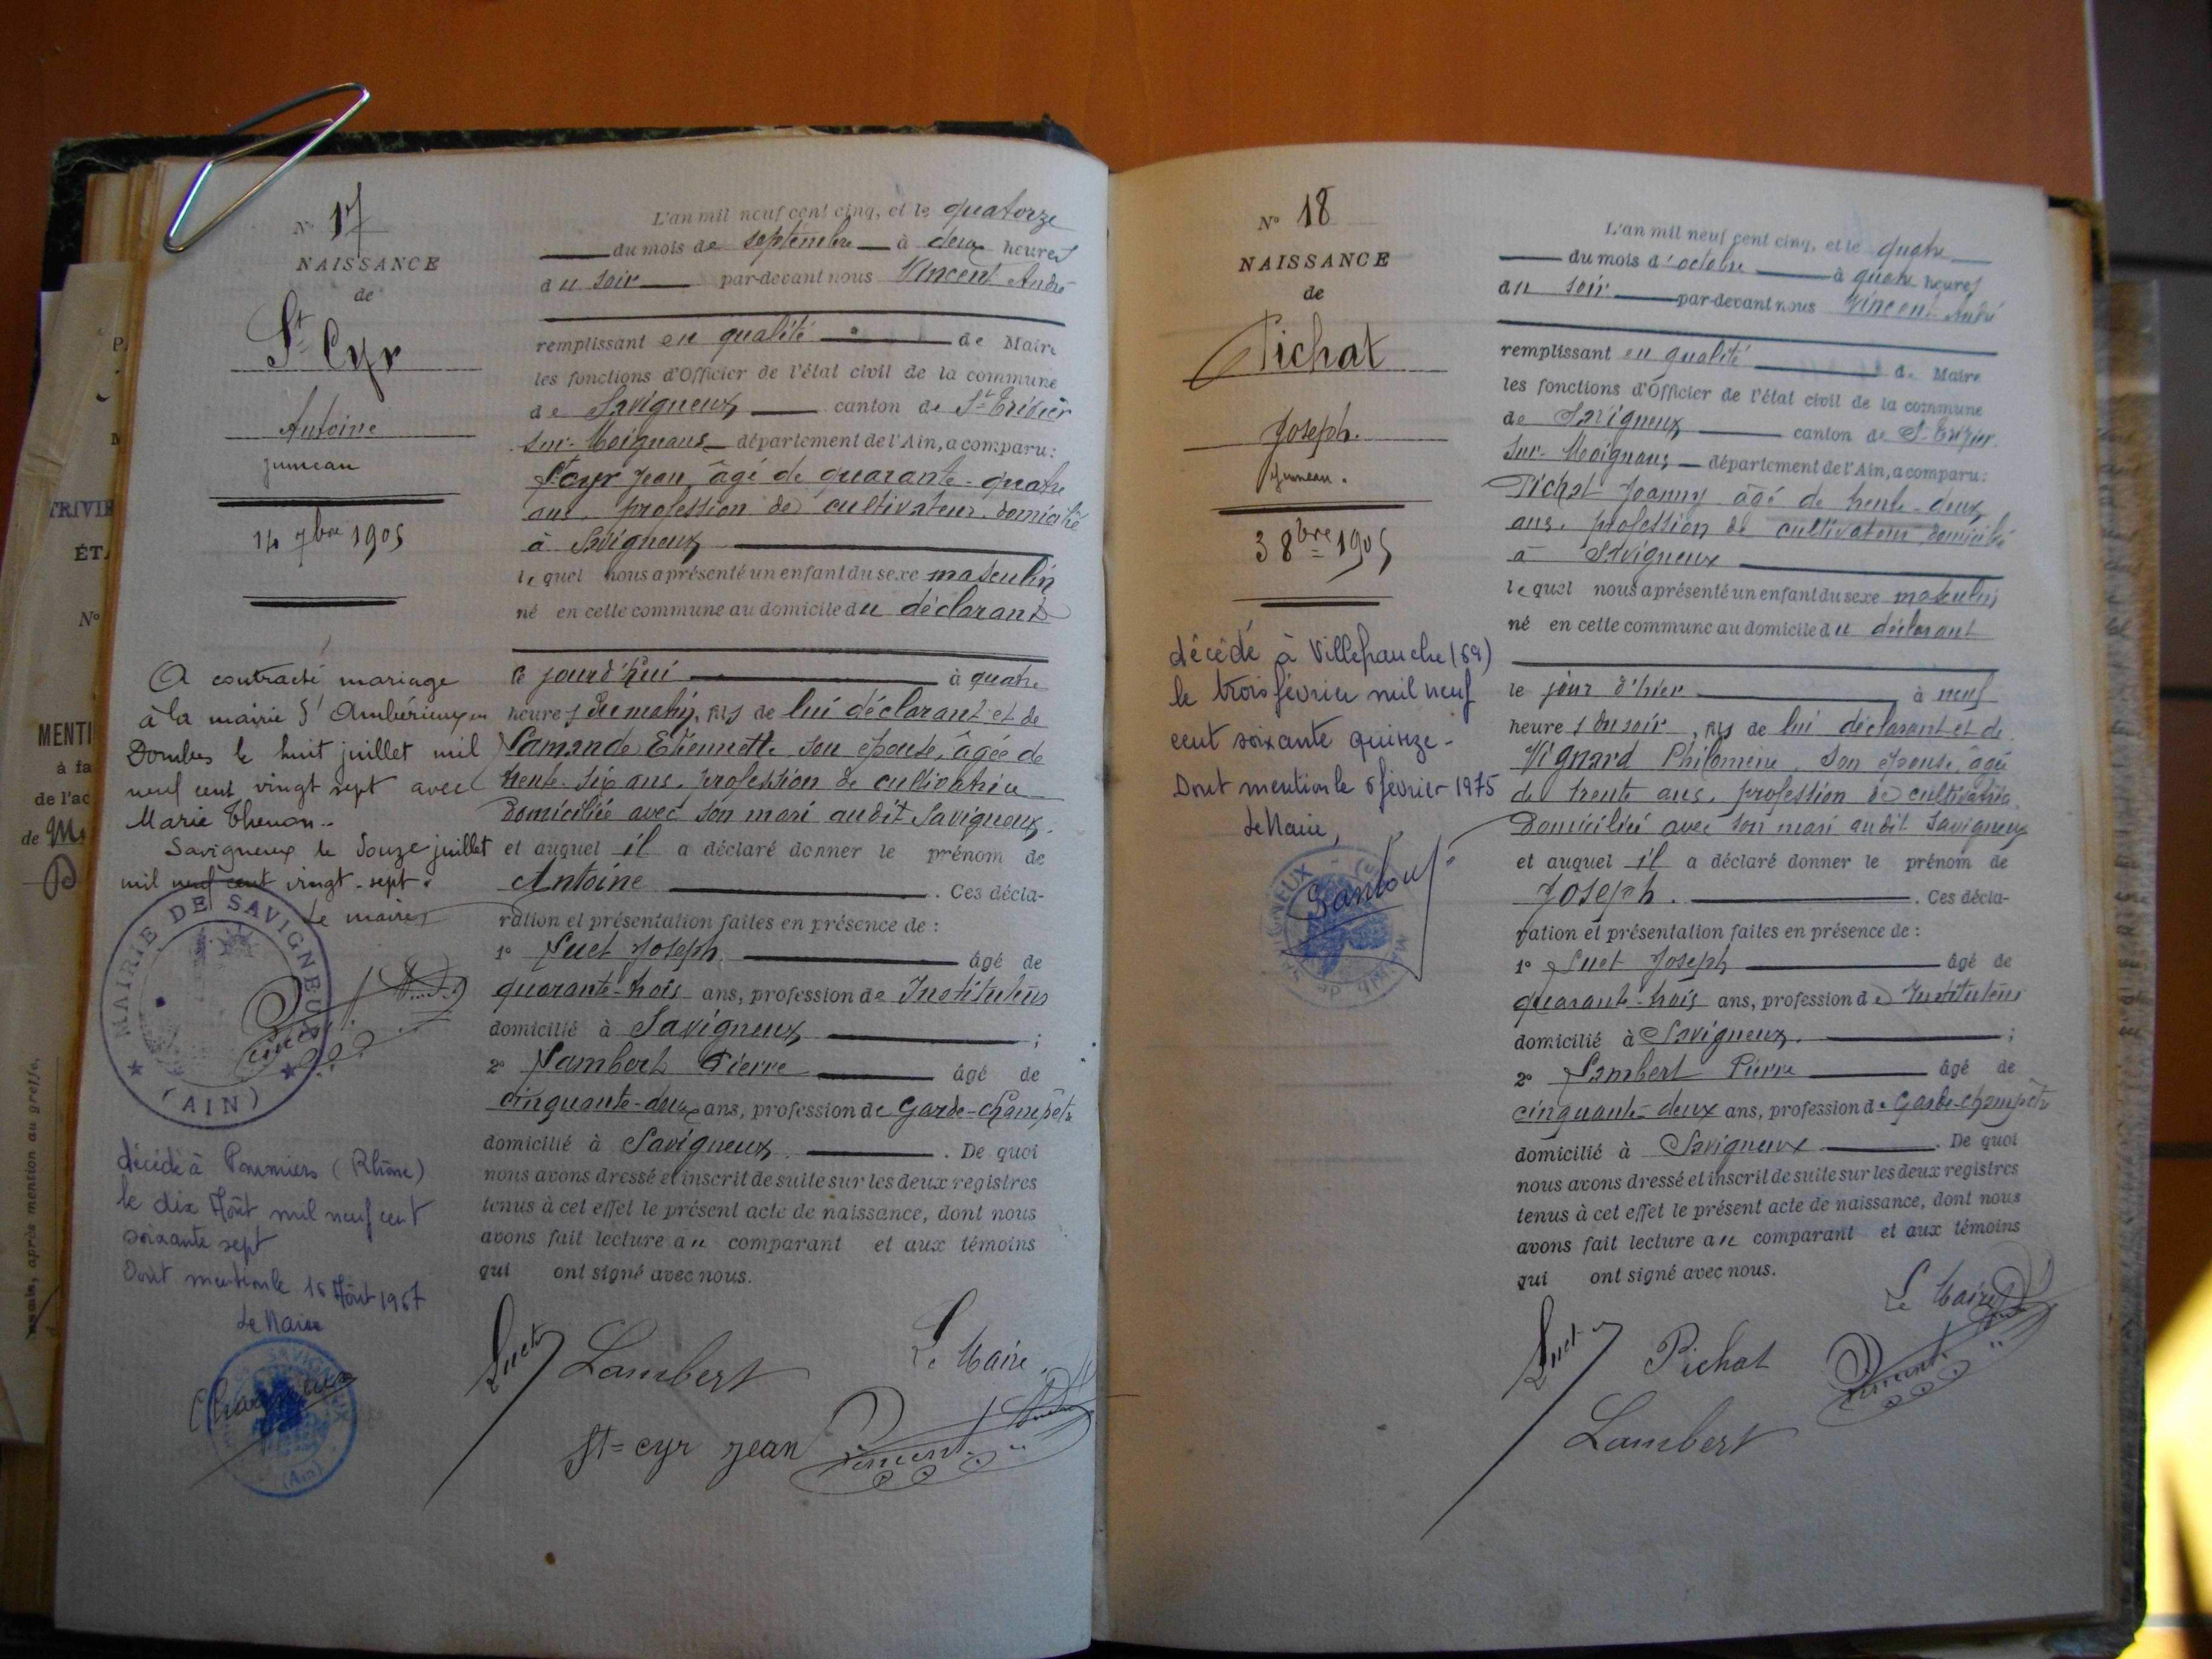 N° 17
NAISSANCE
de
St Cyr
Antoine
jumeau
14 7bre 1905
A contracté mariage
à la mairie d'Ambérieux en
Dombes le huit juillet mil
neuf cent vingt sept avec
Marie Thenon..
Savigneux le douze juillet
mil neuf cent vingt-sept.
Le maire,
MAIRIE DE SAVIGNEUX
(AIN)
décédé à Pommiers (Rhône)
le dix Août mil neuf cent
soixante sept
Dont mention le 16 Août 1967
Le Maire
SAVIGNEUX
(Ain)
L'an mil neuf cent cinq, et le quatorze
du mois de septembre à deux heures
du soir par-devant nous Vincent André
remplissant en qualité de Maire
les fonctions d'Officier de l'état civil de la commune
de Savigneux canton de St Trivier
sur-Moignans département de l'Ain, a comparu:
St cyr Jean, âgé de quarante-quatre
ans, profession de cultivateur, domicilié
à Savigneux
lequel nous a présenté un enfant du sexe masculin
né en cette commune au domicile du déclarant
ce jourd'hui à quatre
heures du matin, fils de lui déclarant et de
Lamande Etiennette, son épouse, âgée de
trente-six ans, profession de cultivatrice
domiciliée avec son mari audit Savigneux,
et auquel il a déclaré donner le prénom de
Antoine . Ces décla-
ration et présentation faites en présence de :
1° Suet Joseph âgé de
quarante-trois ans, profession de Instituteur
domicilié à Savigneux ;
2° Lambert Pierre âgé de
cinquante-deux ans, profession de Garde-champêtre
domicilié à Savigneux . De quoi
nous avons dressé et inscrit de suite sur les deux registres
tenus à cet effet le présent acte de naissance, dont nous
avons fait lecture au comparant et aux témoins
qui ont signé avec nous.
Suet Lambert Le Maire,
St=cyr jean Vincent André
N° 18
NAISSANCE
de
Pichat
Joseph.
Jumeau.
3 8bre 1905
décédé à Villefranche (69)
le trois février mil neuf
cent soixante quinze -
Dont mention le 6 février 1975
Le Maire,
L'an mil neuf cent cinq, et le quatre
du mois d'octobre à quatre heures
du soir par-devant nous Vincent André
remplissant en qualité de Maire
les fonctions d'Officier de l'état civil de la commune
de Savigneux canton de St-Trivier
sur-Moignans département de l'Ain, a comparu:
Pichat Joanny âgé de trente-deux
ans, profession de cultivateur, domicilié
à Savigneux
lequel nous a présenté un enfant du sexe masculin
né en cette commune au domicile du déclarant
le jour d'hier à neuf
heures du soir, fils de lui déclarant et de
Vignard Philomène, son épouse, âgée
de trente ans, profession de cultivatrice,
domiciliée avec son mari audit Savigneux
et auquel il a déclaré donner le prénom de
Joseph. . Ces décla-
ration et présentation faites en présence de :
1° Suet Joseph âgé de
quarante-trois ans, profession de Instituteur
domicilié à Savigneux. ;
2° Lambert Pierre âgé de
cinquante-deux ans, profession de Garde-champêtre
domicilié à Savigneux . De quoi
nous avons dressé et inscrit de suite sur les deux registres
tenus à cet effet le présent acte de naissance, dont nous
avons fait lecture au comparant et aux témoins
qui ont signé avec nous.
Le Maire
Suet Pichat Vincent André
Lambert
TRIVIE
ÉT
N°
MENTI
à fa
de l'ac
de
après mention au greffe.